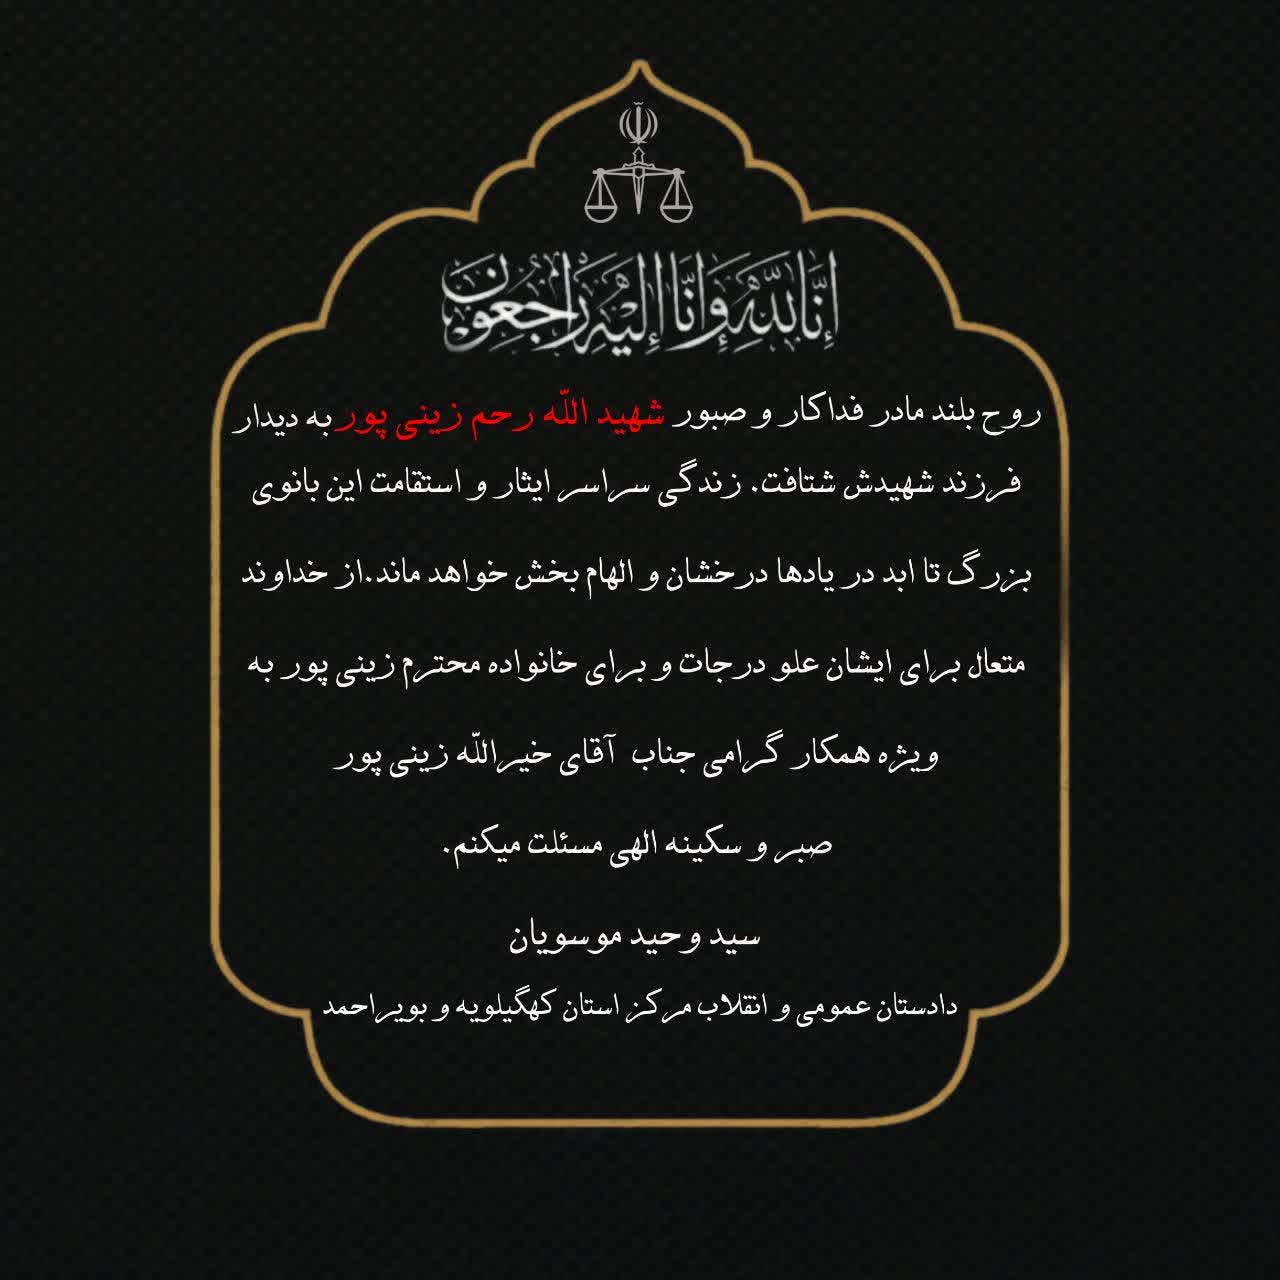 إنا لله وإنا إليه راجعون
روح بلند مادر فداکار و صبور شهید الله رحم زینی پور به دیدار
فرزند شهیدش شتافت. زندگی سراسر ایثار و استقامت این بانوی
بزرگ تا ابد در یادها درخشان و الهام بخش خواهد ماند.از خداوند
متعال برای ایشان علو درجات و برای خانواده محترم زینی پور به
ویژه همکار گرامی جناب آقای خیرالله زینی پور
صبر و سکینه الهی مسئلت میکنم.
سید وحید موسویان
دادستان عمومی و انقلاب مرکز استان کهگیلویه و بویراحمد